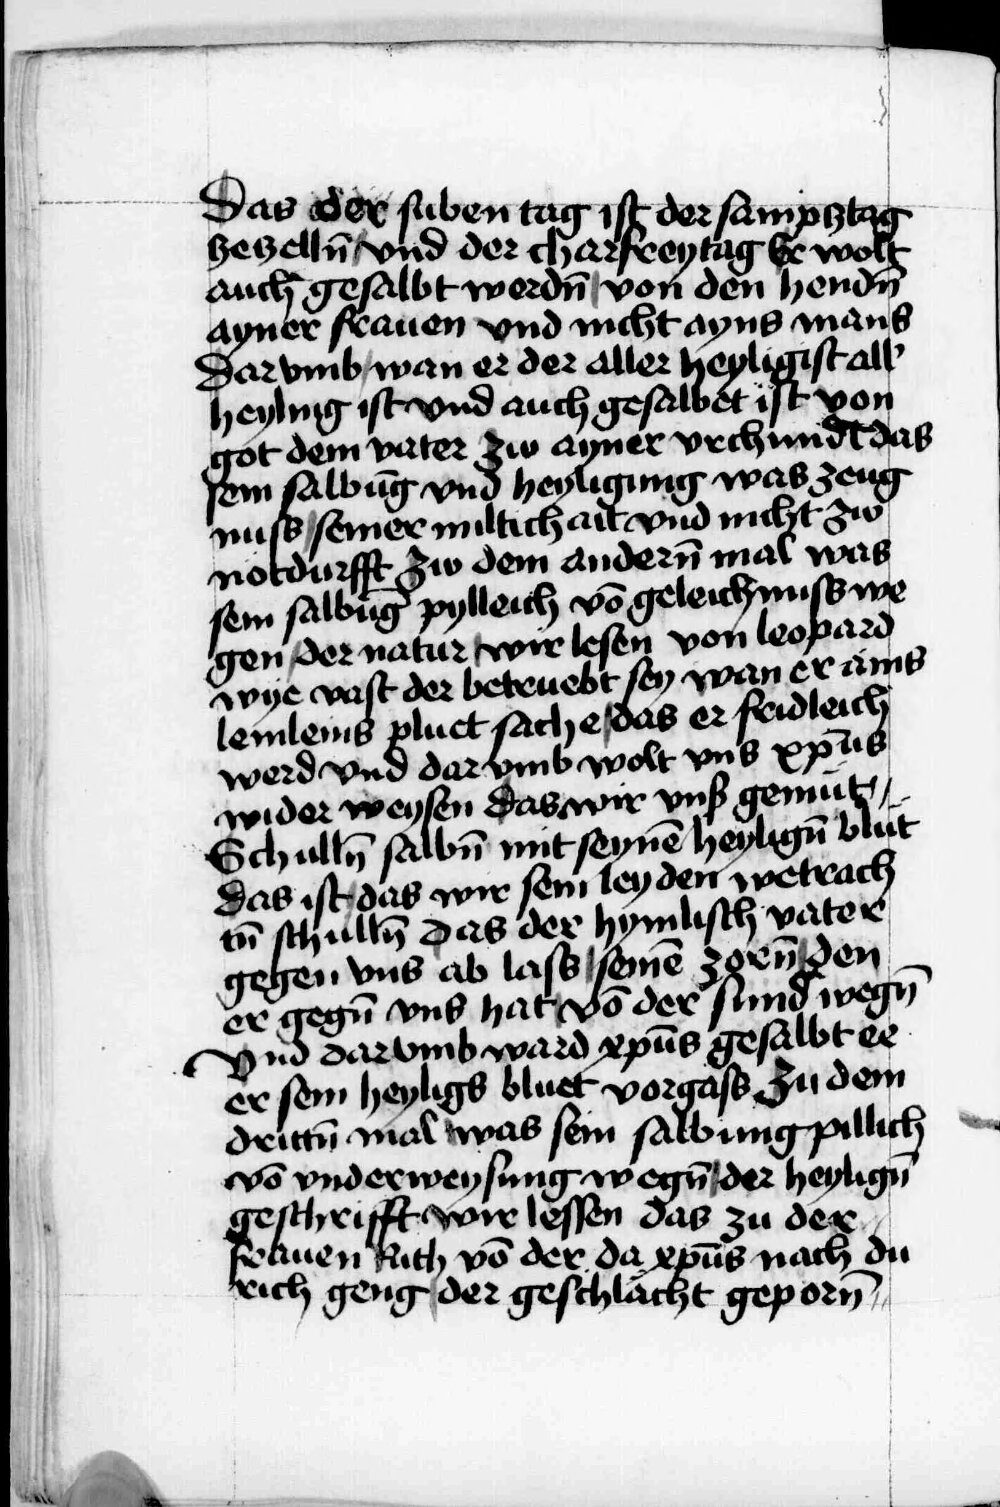 Das der suben tag ist der sampztag
zezelln̄ vnd der charfreytag Er wolt
auch gesalbt werdn̄ von den hendn̄
ayner frauen vnd nicht ayns mans
Dar vmb wan er der aller heyligist all'
heyling ist vnd auch gesalbet ist von
got dem vater zw ayner vrchundt das
sein salbūg vnd heyligung was zeug
nuss seiner miltichait vnd nicht zw
notdurfft zw dem andern̄ mal was
sein salbūg pylleich vō geleichnuss we
gen der natur wir lesen von leopard
wye vast der betruebt sey wan er ains
lemleins pluet sache das er fridleich
werd vnd dar vmb wolt vns xp̄us
wider weysen das wir vnß gemüt
Schulln̄ salbn̄ mit seynē heylign̄ blüt
das ist das wir sein leyden wetrach
tn̄ schulln̄ Das der hymlisch vater
gegen vns ab lass seinē zorn̄ den
er gegn̄ vns hat vō der sund wegn̄
Vnd dar vmb ward xp̄us gesalbt ee
er sein heyligs bluet vorgass Zu dem
drittn̄ mal was sein salbung pillich
vō vnderweysung wegn̄ der heylign̄
geschrifft wir lessen das zu der
frauen Ruth vō der da xp̄us nach du
rich geng der geschlächt geporn̄